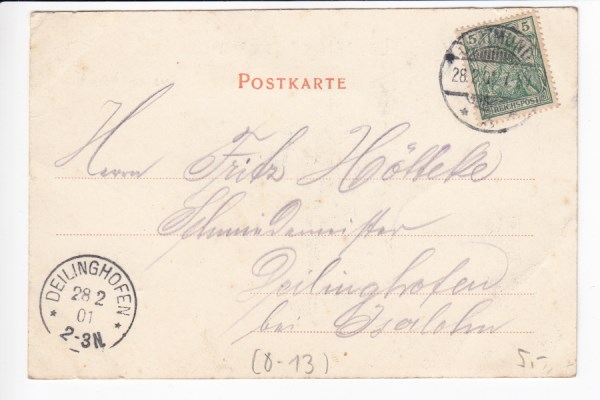 POSTKARTE
5 5
REICHSPOST
DORTMUND
28.2.01.
Herrn Fritz Hölteke
Schmiedemeister
Deilinghofen
bei Iserlohn
DEILINGHOFEN
28 2
01
2-3N.
(0-13)
5,-